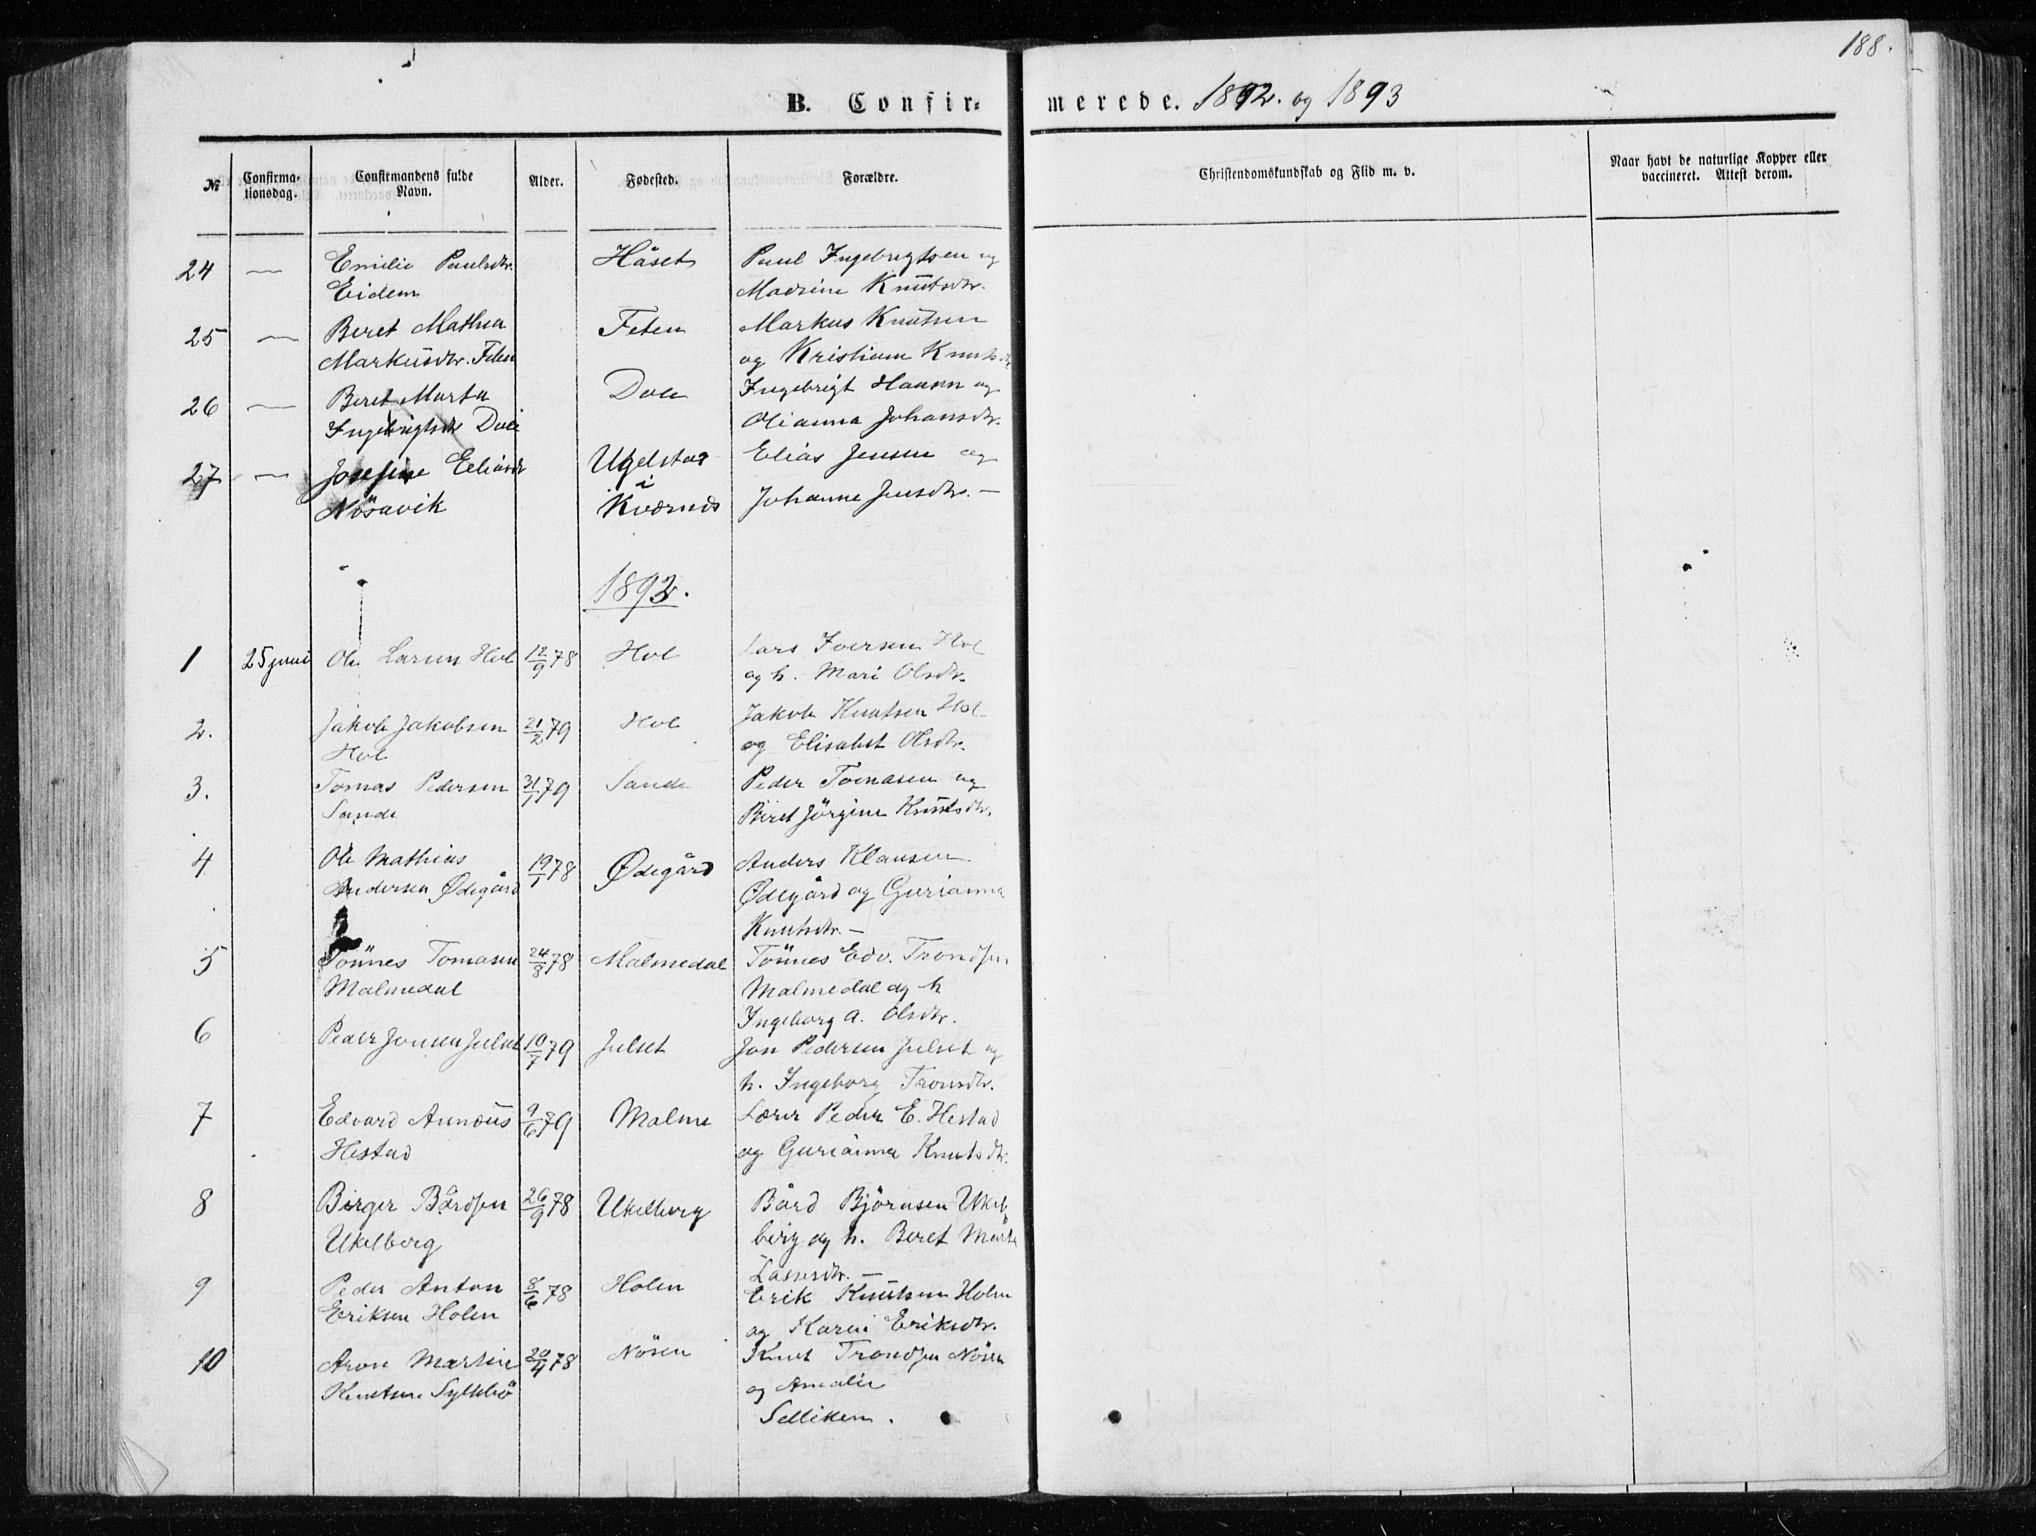 188.
B. Confir-
merede. 1892. og 1893
№
Confirma-
tionsdag.
Confirmandens fulde
Navn.
Alder.
Fødested.
Forældre.
Christendomskundskab og Flid m. v.
Naar havt de naturlige Kopper eller
vaccineret. Attest derom.
24 — Emilie Paulsdtr. Håset Paul Ingebrigtsen og
Eidem Madsine Knutsdtr.
25 — Beret Mathea Feten Markus Knutsen
Markusdtr. Feten og Kristiane Knutsdtr
26 — Beret Marta Dole Ingebrigt Hansen og
Ingebrigtsdtr Dole Olianna Johansdtr.
27 — Josefine Eliasdtr Ugelstad Elias Jensen og
i
Nösavik Kværnes Johanne Jensdtr. —
1892.
1 25 juni Ole Larsen Hol 12/9 78 Hol Lars Iversen Hol
og h. Mari Olsdtr.
2. Jakob Jakobsen 21/2 79 Hol Jakob Knutsen Hol
Hol og Elisabet Olsdtr.
3. Tomas Pedersen 31/1 79 Sande Peder Tomasen og
Sande Beret Jörgine Knutsdtr.
4 Ole Mathias 19/1 78 Ødegård Anders Klausen
Andersen Ødegård Ødegård og Gurianna
Knutsdtr. —
5 Tönnes Tomasen 24/8 78 Malmedal Tönnes Edv. Trondsen
Malmedal Malmedal og h
Ingeborg A. Olsdtr.
6 Peder Jonsen Julset 10/7 79 Julset Jon Pedersen Julset og
h. Ingeborg Tronsdtr.
7 Edvard Annæus 9/6 79 Malme Lærer Peder E. Hestad
Hestad og Gurianna Knutsdtr.
8 Birger Bårdsen 26/9 78 Ukelberg Bård Björnsen Ukel-
Ukelberg berg og h. Beret Marta
Lassesdtr. —
9 Peder Anton 8/6 78 Holen Erik Knutsen Holen
Eriksen Holen og Karen Eriksdtr.
10 Aron Martin 20/4 78 Nösen Knut Trondsen Nösen
Knutsen Sylthbö og Amalie
Selliken.